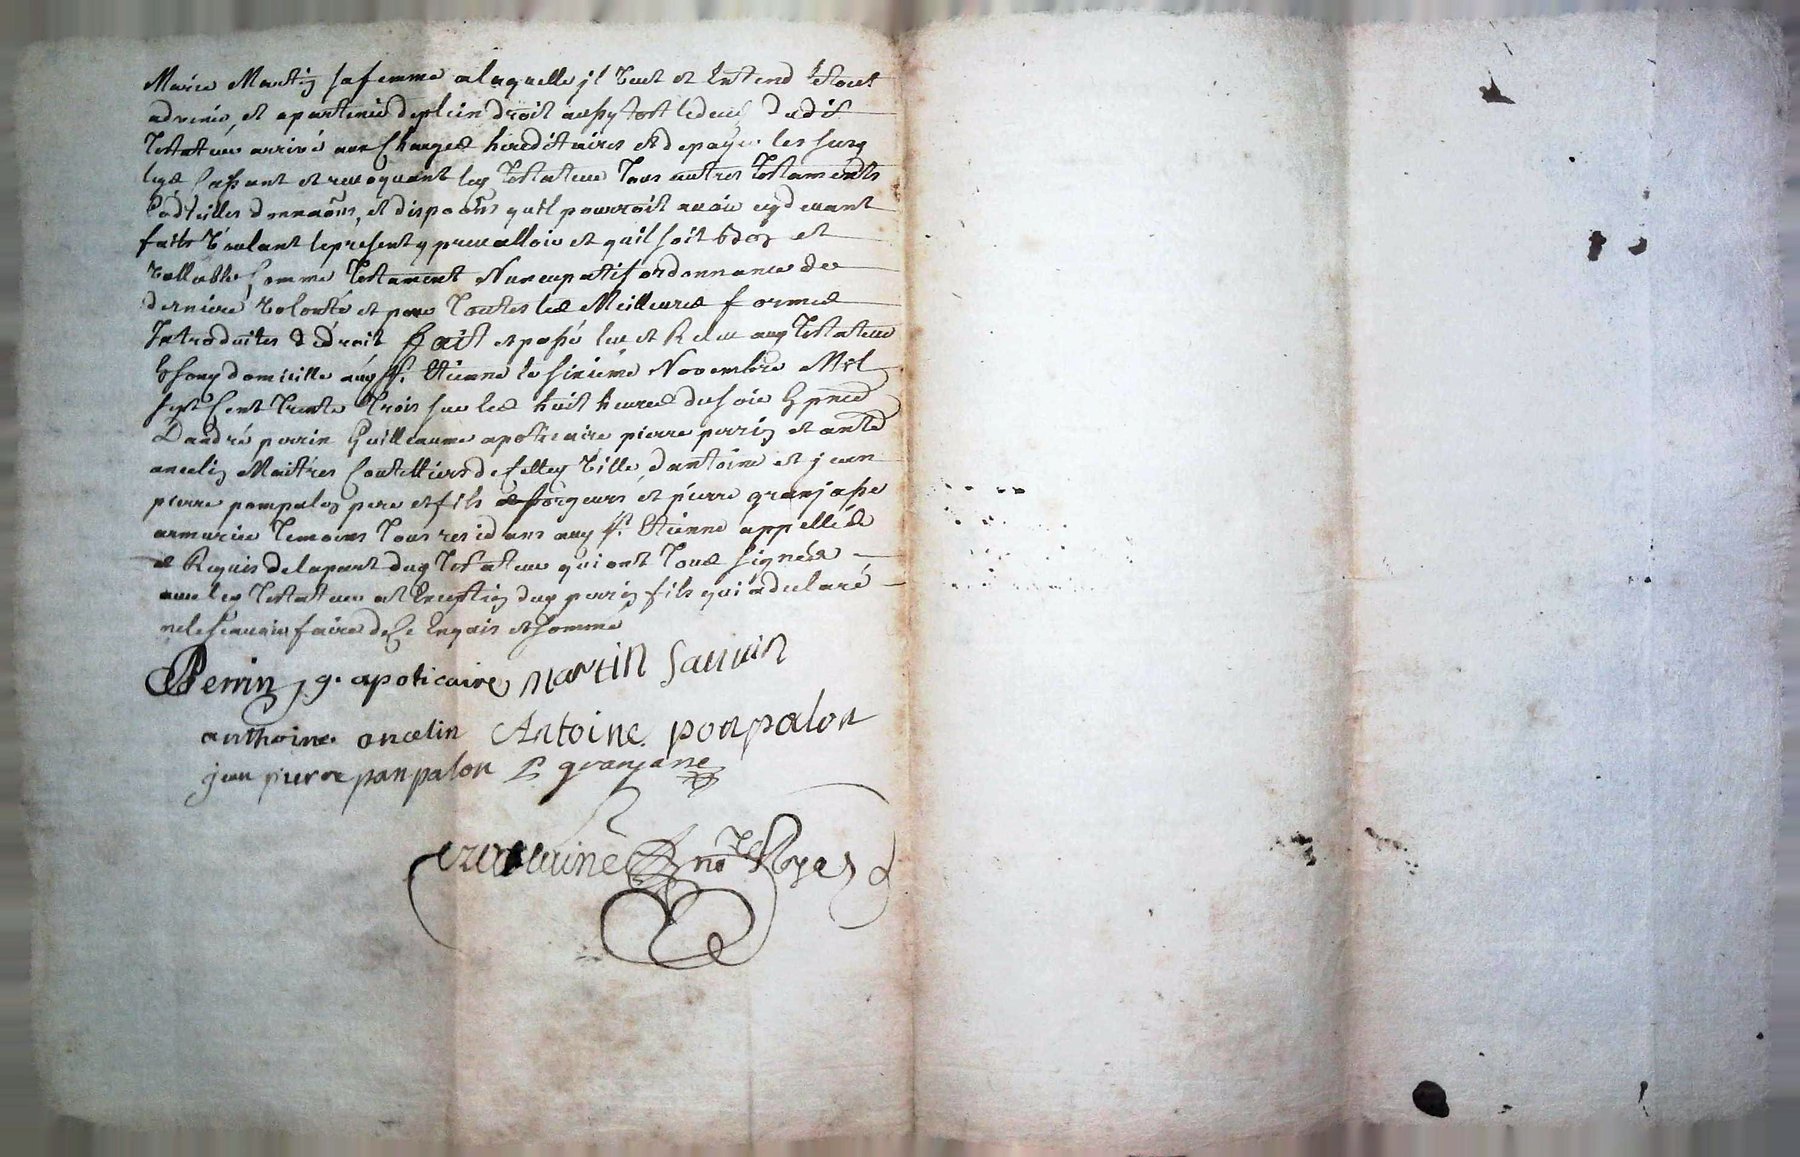 Marie Martin sa femme a laquelle jl veut et Entend le tout
advenir, et apartenir de plein droit aussy tost le deces dudit
Testateur arrivé aux Charges hereditaires et de payer les susd
legs Cassant et revoquant led Testateur Tous autres Testaments
Codicilles donnaons, et dispoons quil pourroit avoir cy devant
faits Voulant le present y prevalloir et quil soit bon et
Vallable Comme Testament Nuncupatif ordonnance de
derniere volonté et par Toutes les Meilleures formes
Introduites de droit fait et passé leu et Releu aud Testateur
En son domicille aud St. Etienne le sixiéme Novembre Mil
sept Cent Trente Trois sur les huit heures du soir En pnce
D'andré perrin Guilleaume apoticaire pierre perrin et anthe
ancelin Maitres Coutelliers de Cette ville d'antoine et jean
pierre pompalon pere et fils forgeurs et pierre granjasse
armurier Temoins Tous residans aud St. Etienne appellés
et Requis de la part dud Testateur qui ont Tous signés
avec led Testateur et Exception dud perrin fils qui a declaré
ne le scavoir faire de Ce Enquis et sommé
Perrin, g. apoticaire Martin Sauvin
anthoine ancelin Antoine ponpalon
jean pierre panpalon P granjane
nore Royal